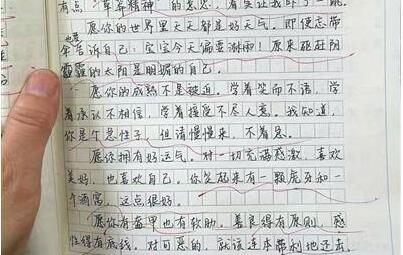 有点"车名精神"的意思，
愿你的世界里天天都是好天气。即使忘带
也要
伞告诉自己：宝宝今天偏要淋雨！原来驱赶阴
霾霾的太阳是明媚的自己。
愿你的成熟不是被迫。学着笑而不语，学
着承认不相信，学着接受不尽人意。我知道，
你是个急性子，但请慢慢来，不着急。
愿你拥有好运气。对一切充满感激，喜欢
美好，也喜欢自己。你笑起来有一颗虎牙和一
个酒窝，这点很好。
愿你有盔甲也有软肋，善良得有原则，感
性得有底线。对可恶的，就该连本带利地还击，